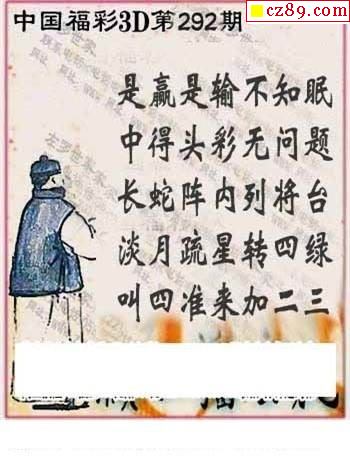 cz89.com
中国福彩3D第292期
是赢是输不知眠
中得头彩无问题
长蛇阵内列将台
淡月疏星转四绿
叫四准来加二三